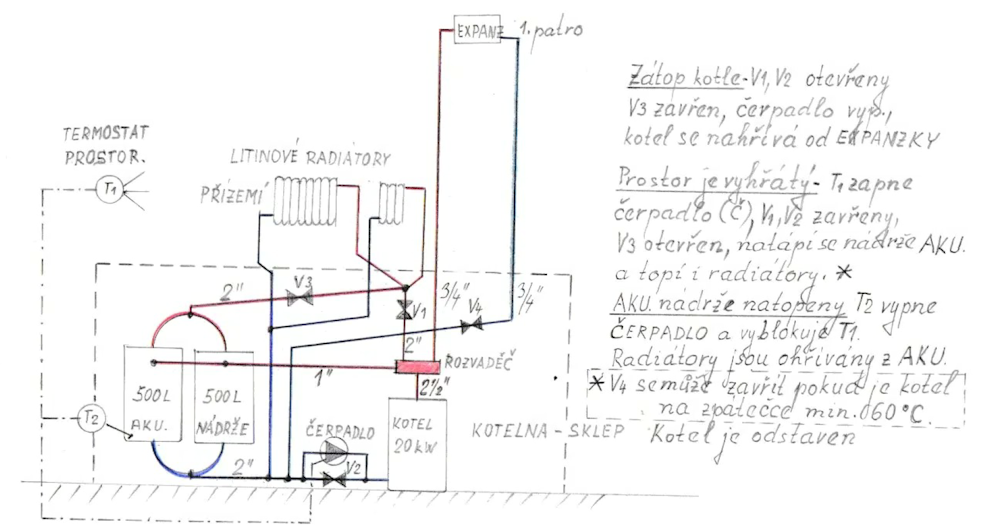 EXPANZ
1. patro
TERMOSTAT
PROSTOR.
T1
LITINOVÉ RADIÁTORY
PŘÍZEMÍ
2"
V3
V1
3/4"
V4
3/4"
2"
ROZVADĚČ
1"
2½"
500L
AKU.
500L
NÁDRŽE
T2
ČERPADLO
V2
2"
KOTEL
20kW
KOTELNA - SKLEP
Zátop kotle - V1, V2 otevřeny
V3 zavřen, čerpadlo vyp.,
kotel se nahřívá od EXPANZKY
Prostor je vyhřátý - T1 zapne
čerpadlo (Č), V1, V2 zavřeny,
V3 otevřen, natápí se nádrže AKU.
a topí i radiátory. *
AKU. nádrže natopeny T2 vypne
ČERPADLO a vyblokuje T1.
Radiátory jsou ohřívány z AKU.
* V4 se může zavřít pokud je kotel
na zpátečce min. 060°C.
Kotel je odstaven